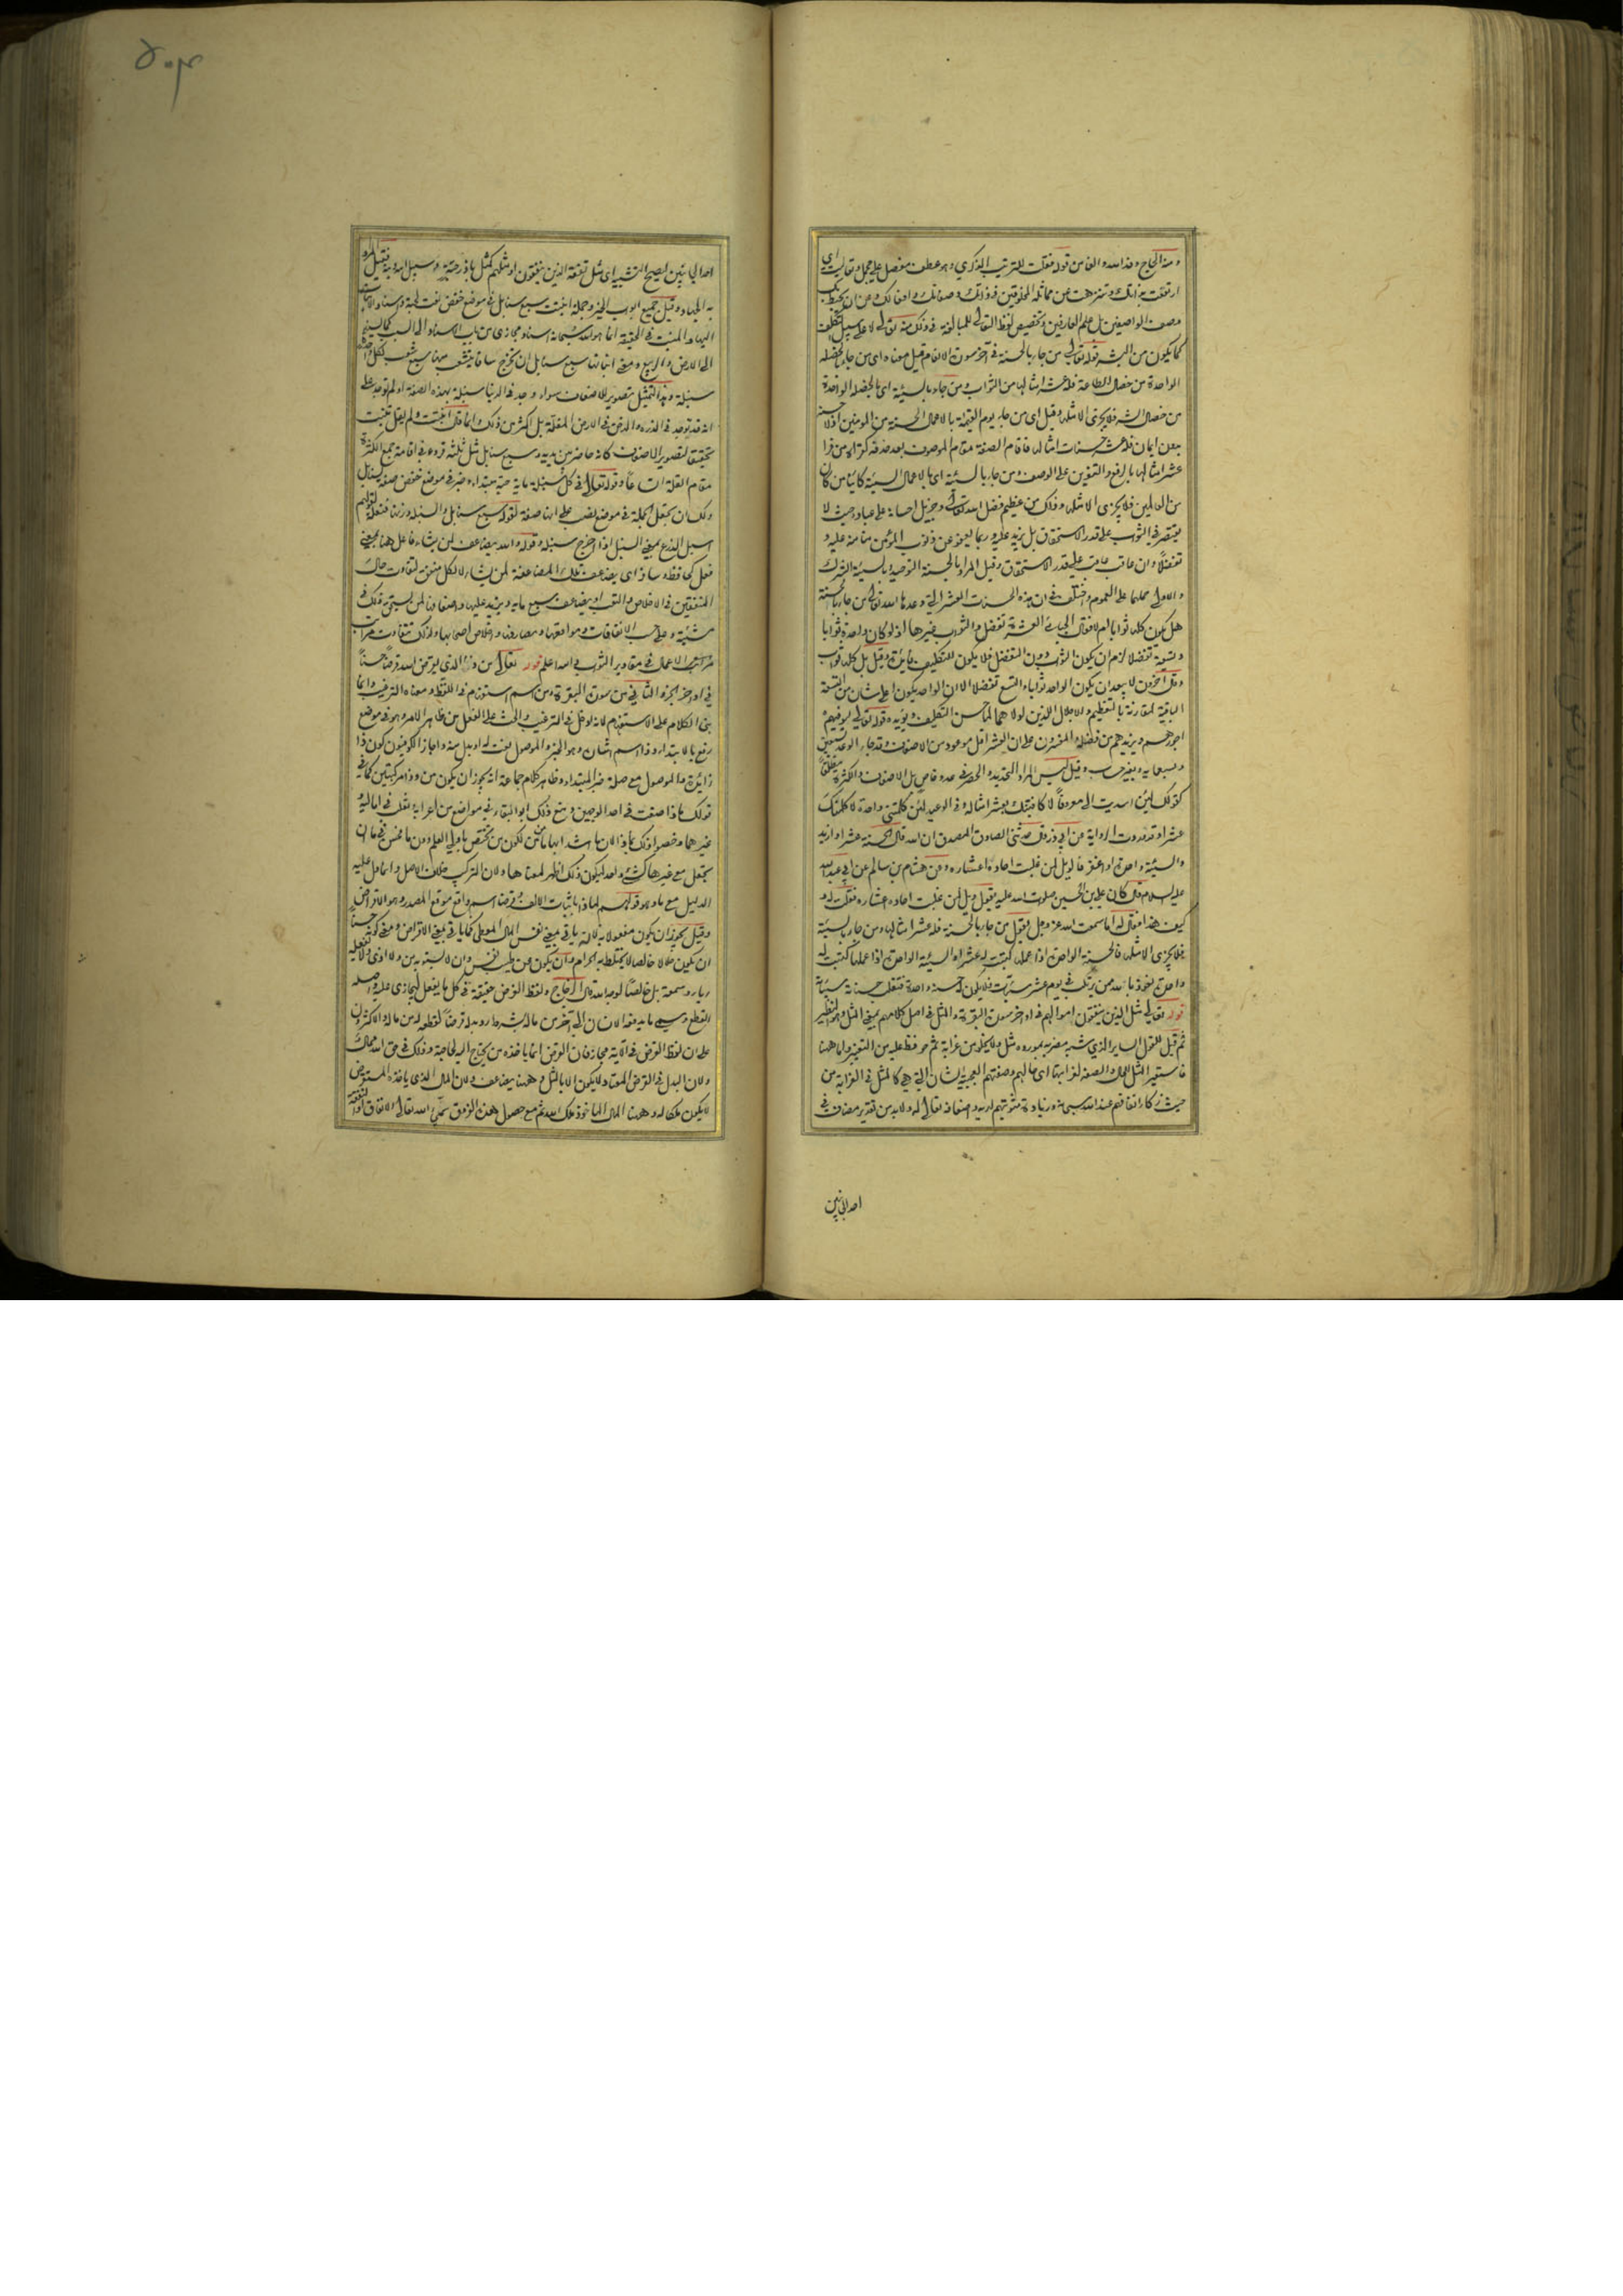 ارتفعت بذاتك وتنزهت عن مماثلة المخلوقين في ذاتك وصفاتك وافعالك وعن ان يحيط بك
وصف الواصفين بل علم العارفين وتخصيص لفظ التعالي للمبالغة في ذلك منه تعالى لا على سبيل التكلف
كما يكون من البشر قوله تعالى من جاء بالحسنة في آخر سورة الانعام قيل معناه اي من جاء بالخصلة
الواحدة من خصال الطاعة فله عشر امثالها من الثواب ومن جاء بالسيئة اي بالخصلة الواحدة
من خصال الشر فلا يجزى الا مثلها وقيل اي من جاء يوم القيمة بالاعمال الحسنة من المؤمنين اذ لا حسنة
بغير ايمان فله عشر حسنات امثالها فاقام الصفة مقام الموصوف بعد حذفه كراهة من قرأ
عشر امثالها بالرفع والتنوين على الوصف ومن جاء بالسيئة اي بالاعمال السيئة كائنا من كان
من العالمين فلا يجزى الا مثلها وذلك من عظيم فضل الله تعالى وجزيل احسانه على عباده حيث لا
يقتصر في الثواب على قدر الاستحقاق بل يزيد عليه وربما يعفو عن ذنوب المؤمن منا منه عليه و
تفضلا وان عاقب عاقب على قدر الاستحقاق وقيل المراد بالحسنة التوحيد وبالسيئة الشرك
والاولى حملها على العموم واختلف في ان هذه الحسنات العشر التي وعدها الله تعالى من جاء بالحسنة
هل يكون كلها ثوابا ام لا فقال الجبائي العشرة تفضل والثواب غيرها اذ لو كان واحدة ثوابا
وتسعة تفضلا لزم ان يكون الثواب دون التفضل فلا يكون للتكليف فائدة وقيل بل كلها ثواب
وقال آخرون لا يبعد ان يكون الواحد ثوابا والتسع تفضلا الا ان الواحد يكون اعلى شانا من التسعة
الباقية لمقارنته بالتعظيم والاجلال اللذين لولاهما لما حسن التكليف ويؤيده قوله تعالى ليوفيهم
اجورهم ويزيدهم من فضله المفسرون على ان العشر اقل موعود من الاضعاف وقد جاء الوعد بسبعين
وبسبعمائة وبغير حساب وقيل ليس المراد التحديد والحصر في عدد خاص بل الاضعاف والكثرة مطلقا
كقولك لئن اسديت الي معروفا لاكافيتك بعشر امثاله وفي الوعيد لئن كلمتني واحدة لاكلمنك
عشرا وقد وردت الرواية عن ابي ذر قال حدثني الصادق المصدق ان الله قال الحسنة عشر او ازيد
والسيئة واحدة او اغفر فالويل لمن غلبت احاده اعشاره وعن هشام بن سالم عن ابي عبد الله
عليه السلام قال كان علي بن الحسين صلوات الله عليه يقول ويل لمن غلبت احاده عشاره فقلت له و
كيف هذا فقال له اما سمعت الله عز وجل يقول من جاء بالحسنة فله عشر امثالها ومن جاء بالسيئة
فلا يجزى الا مثلها فالحسنة الواحدة اذا عملها كتبت له عشرا والسيئة الواحدة اذا عملها كتبت له
واحدة نعوذ بالله ممن يرتكب في يوم عشر سيئات فلا يكون له حسنة واحدة فتغلب حسناته سيئاته
قوله تعالى مثل الذين ينفقون اموالهم في اواخر سورة البقرة والمثل في اصل كلامهم بمعنى المثل وهو النظير
ثم قيل للقول الساير الذي شبه مضربه بمورده مثل ولا يخلو من غرابة ثم حوفظ عليه من التغيير واما ههنا
فاستعير المثل للحال والصفة لغرابتها اي حالهم وصفتهم العجيبة الشان التي هي كالمثل في الغرابة من
حيث زكاء انفاقهم عند الله سبحانه وزيادة مثوبتهم لديه واضعافه تعالى له ولا بد من تقدير مضاف في
احد الجانبين
احد الجانبين ليصح التشبيه اي مثل نفقة الذين ينفقون او مثلهم كمثل باذر حبة وسبيل الله قيل المراد
به الجهاد وقيل جميع ابواب الخير وجملة انبتت سبع سنابل في موضع خفض نعت لحبة واسناد الانبات
اليها والمنبت في الحقيقة انما هو الله سبحانه اسناد مجازي من باب الاسناد الى السبب كما ينسب
الى الارض والربيع ومعنى انباتها سبع سنابل ان تخرج ساقا يتشعب منها سبع شعب لكل واحدة
سنبلة وهذا التمثيل تصوير للاضعاف سواء وجد في الدنيا سنبلة بهذه الصفة او لم توجد على
انه قد توجد في الذرة والدخن في الارض المغلة بل اكثر من ذلك وانما قال انبتت ولم يقل تنبت
تحقيقا لتصوير الاضعاف كانه حاضر بين يديه وسبع سنابل مثل ثلثة قروء في اقامة جمع الكثرة
مقام القلة اتساعا وقوله تعالى في كل سنبلة ماية حبة مبتداء وخبر في موضع خفض صفة لسنابل
ولك ان تجعل الجملة في موضع نصب على انها صفة لقوله سبع سنابل والسنبلة وزنها فنعلة لقولهم
اسبل الزرع بمعنى السنبل اذا اخرج سنبله وقوله والله يضاعف لمن يشاء فاعل هنا بمعنى
فعل كحافظ وسافر اي يضاعف تلك المضاعفة لمن يشاء لا لكل منفق لتفاوت حال
المنفقين في الاخلاص والتعب او يضاعف سبع ماية ويزيد عليها اضعافا لمن يستحق ذلك في
مشيته وعلى حسب الانفاقات ومواقعها ومصارفها واخلاص اصحابها ولذلك تتفاوت مراتب
مراتب الاعمال في مقادير الثواب والله اعلم قوله تعالى من ذا الذي يقرض الله قرضا حسنا
في اواخر الجزء الثاني من سورة البقرة ومن اسم استفهام في اللفظ ومعناه الترغيب وانما
بنى الكلام على الاستفهام لانه ادخل في الترغيب والحث على الفعل من ظاهر الامر وهو في موضع
رفع بالابتداء وذا اسم اشارة وهو الخبر والموصول نعت له او بدل منه واجاز الكوفيون كون ذا
زائدة والموصول مع صلته خبر المبتداء وظاهر كلام جماعة انه يجوز ان يكون من وذا مركبتين كما في
قولك ماذا صنعت في احد الوجهين ومنع ذلك ابو البقاء في مواضع من اعرابه وثعلب في اماليه و
غيرهما وخصوا ذلك بماذا لان ما اشد ابهاما من من لكون من يختص باولي العلم ودون ما فحسن في ما ان
تجعل مع غيرها كشئ واحد ليكون ذلك اظهر لمعناها ولان التركيب خلاف الاصل وانما دل عليه
الدليل مع ما وهو قولهم لماذا باثبات الالف وقرضا اسم واقع موقع المصدر وهو الاقراض
وقيل يجوز ان يكون مفعولا به لانه ياتي بمعنى نفس المال المعطى كما ياتي بمعنى الاقراض ومعنى كونه حسنا
ان يكون حلالا خالصا لا يختلط به الحرام وان يكون عن طيب نفس وان لا يتبعه بمن ولا اذى ولا يفعله
رياء وسمعة بل خالصا لوجه الله قال الزجاج ولفظ القرض حقيقة في كل ما يفعل ليجازى عليه واصله
القطع وسمي ما يدفعه الانسان الى آخر من ماله بشرط رد بدله قرضا لقطعه له من ماله والاكثرون
على ان لفظ القرض في الآية مجاز فان القرض انما ياخذه من يحتاج اليه لحاجة وذلك في حق الله محال
ولان البدل في القرض المعتاد لا يكون الا بالمثل وههنا يضاعف ولان المال الذي ياخذه المستقرض
لا يكون ملكا له وههنا المال الماخوذ ملك الله ثم مع حصول هذه الفروق سمى الله تعالى الانفاق